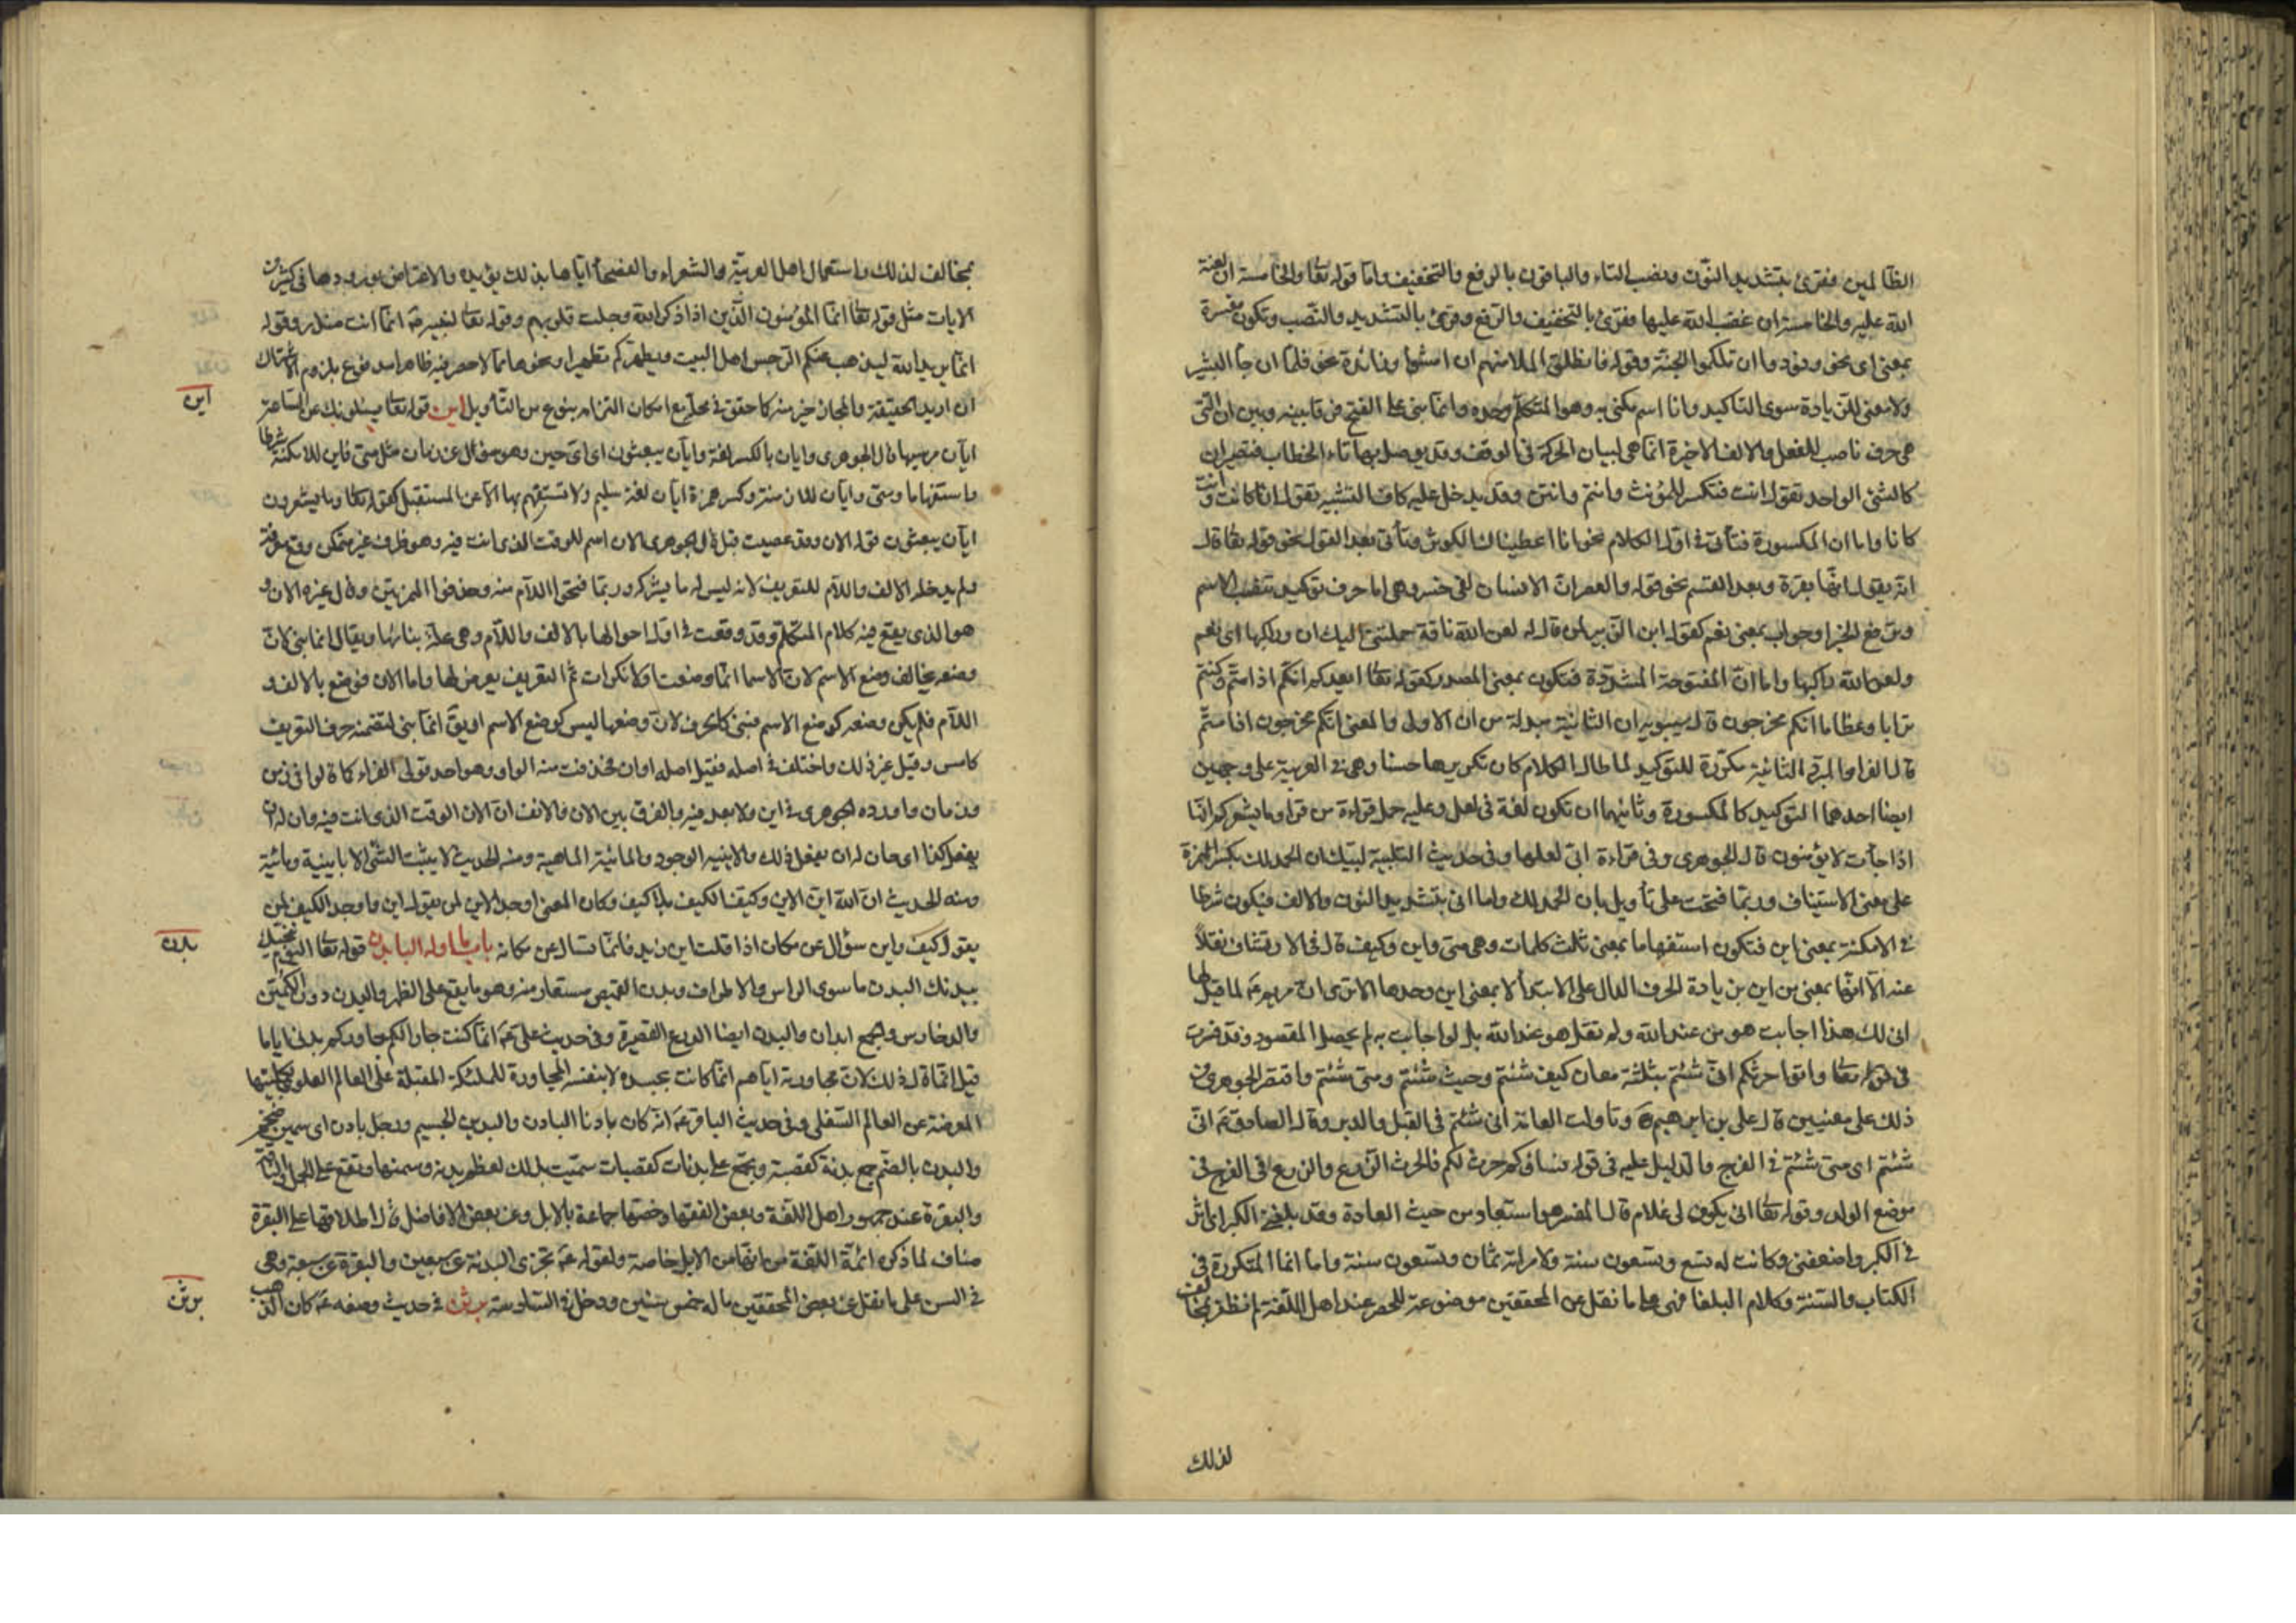 الظالمين فقرئ بتشديد النون ونصب التاء والباقون بالرفع والتخفيف واما قوله تعا والخامسة ان لعنة
الله عليه والخامسة ان غضب الله عليها فقرئ بالتخفيف والرفع وقرئ بالتشديد والنصب وتكون مفسرة
بمعنى اى نحو ونودوا ان تلكموا الجنة وقوله فانطلق الملا منهم ان امشوا وزائدة نحو فلما ان جا البشير
ولا معنى للزيادة سوى التاكيد وانا اسم مكنى به وهو المتكلم وحده وانما بنى على الفتح فرقا بينه وبين ان التى
هى حرف ناصب للفعل والالف الاخيرة انما هى لبيان الحركة فى الوقف وقد يوصل بها تاء الخطاب فتصيران
كالشئ الواحد تقول انت فتكسر للمؤنث وانتم وانتن وقد يدخل عليه كاف التشبيه تقول انا كانت وانت
كانا واما ان المكسورة فتأتى فى اول الكلام نحو انا اعطيناك الكوثر وتأتى بعد القول نحو قوله تعا قال
انه يقول انها بقرة وبعد القسم نحو قوله والعصر ان الانسان لفى خسر وهى اما حرف توكيد تنصب الاسم
وترفع الخبر او جواب بمعنى نعم كقول ابن الزبير لمن قال له لعن الله ناقة حملتنى اليك ان وراكبها اى نعم
ولعن الله راكبها واما ان المفتوحة المشددة فتكون بمعنى المصدر كقوله تعا ايعدكم انكم اذا متم وكنتم
ترابا وعظاما انكم مخرجون قال سيبويه ان الثانية مبدلة من ان الاولى والمعنى انكم مخرجون اذا متم
قال الفرا والمبرد الثانية مكررة للتوكيد لما طال الكلام كان تكريرها حسنا وهى فى العربية على وجهين
ايضا احدهما التوكيد كالمكسورة وثانيهما ان تكون لغة فى لعل وعليه حمل قراءة من قرا وما يشعركم انها
اذا جاءت لا يؤمنون قال الجوهرى وفى قراءة ابى لعلها وفى حديث التلبية لبيك ان الحمد لك بكسر الهمزة
على معنى الاستيناف وربما فتحت على تأويل بان الحمد لك واما انى بتشديد النون والالف فيكون شرطا
فى الامكنة بمعنى اين فتكون استفهاما بمعنى ثلث كلمات وهى متى واين وكيف قال فى الارتشاف نقلا
عنه الا انها بمعنى من اين بن زيادة الحرف الدال على الابتدأ لا بمعنى اين وحدها الا ترى ان مريم ع لما قيل لها
انى لك هذا اجابت هو من عند الله ولم تقل هو عند الله بل لو اجابت به لم يحصل المقصود وقد فسرت
فى قوله تعا واتوا حرثكم انى شئتم بثلثة معان كيف شئتم وحيث شئتم ومتى شئتم واقتصر الجوهرى من
ذلك على معنيين قال على بن ابرهيم وتاولت العامة انى شئتم فى القبل والدبر وقال الصادق ع انى
شئتم اى متى شئتم فى الفرج والدليل عليه فى قوله نساؤكم حرث لكم فالحرث الزرع والزرع فى الفرج فى
موضع الولد وقوله تعا انى يكون لى غلام قال المفسر هو استبعاد من حيث العادة وقد بلغنى الكبر اى اثر
فى الكبر واضعفنى وكانت له تسع وتسعون سنة ولامراته ثمان وتسعون سنة واما انما المتكررة فى
الكتاب والسنة وكلام البلغا فهى على ما نقل عن المحققين موضوعة للحصر عند اهل اللغة لم نظفر بمخالف
لذلك
بمخالف لذلك واستعمال اهل العربية والشعراء والفصحاء اياها بذلك يؤيده والاعتراض بورودها فى كثير من
الايات مثل قوله تعا انما المؤمنون الذين اذا ذكر الله وجلت قلوبهم وقوله تعا لنبيه ص انما انت منذر وقوله
انما يريد الله ليذهب عنكم الرجس اهل البيت ويطهركم تطهيرا ونحوها مما لا حصر فيه ظاهرا مدفوع بلزوم الاشتراك
ان اريد الحقيقة والمجاز خير منه كما حقق فى محله مع امكان التزامه بنوع من التأويل اين قوله تعا يسئلونك عن الساعة
ايان مرسيها قال الجوهرى وايان بالكسر لغة وايان يبعثون اى اى حين وهو سؤال عن زمان مثل متى واين للامكنة شرطا
واستفهاما ومتى وايان للازمنة وكسر همزة ايان لغة سليم ولا تستفهم بها الا عن المستقبل كقوله تعا وما يشعرون
ايان يبعثون قوله الان وقد عصيت قبل قال الجوهرى الان اسم للوقت الذى انت فيه وهو ظرف غير متمكن وقع معرفة
ولم يدخله الالف واللام للتعريف لانه ليس له ما يشركه وربما فتحوا اللام منه وحذفوا الهمزتين وقال غيره الان و
هو الذى يقع فيه كلام المتكلم وقد وقعت فى اول احوالها بالالف واللام وهى علة بنائها ويقال انما بنى لان
وضعه يخالف وضع الاسم لان الاسما انما وضعت اولا نكرات ثم التعريف يعرض لها واما الان فوضع بالالف و
اللام فلم يكن وضعه كوضع الاسم فبنى كالحرف لان وضعها ليس كوضع الاسم او يق انما بنى لتضمنه حرف التعريف
كامس وقيل غير ذلك واختلف فى اصله فقيل اصله اوان فحذفت منه الواو وهو احد قولى الفراء كما قالوا فى زمن
وزمان واورده الجوهرى فى اين ولا بعد فيه والفرق بين الان والانف ان الان الوقت الذى انت فيه وان له ان
يفعل كذا اى حان له ان يفعل ذلك والاينيه الوجود والمائية الماهية ومنه الحديث لا يثبت الشئ الا باينية ومائية
ومنه الحديث ان الله اين الاين وكيف الكيف بلا كيف وكان المعنى اوجد الاين لمن يقول اين واوجد الكيف لمن
يقول كيف واين سؤال عن مكان اذا قلت اين زيد فانما تسال عن مكانه باب ما اوله البا بدن قوله تعا اليوم ننجيك
ببدنك البدن ما سوى الراس والاطراف وبدن القميص مستعار منه وهو ما يقع على الظهر والبدن دون الكمين
والدخاريص والجمع ابدان والبدن ايضا الدرع القصيرة وفى حديث على ع انما كنت جارا لكم جاوركم بدنى اياما
قيل انما قال ذلك لان مجاورته اياهم انما كانت بجسده لا بنفسه المجاورة للملئكة المقبلة على العالم العلوى بكليتها
المعرضة عن العالم السفلى وفى حديث الباقر ع انه كان بادنا البادن والبدين الجسيم ورجل بادن اى سمين ضخم
والبدن بالضم جمع بدنة كقصبة وتجمع على بدنات كقصبات سميت بذلك لعظم بدنها وسمنها وتقع على الجمل والناقة
والبقرة عند جمهور اهل اللغة وبعض الفقها وخصها جماعة بالابل وعن بعض الافاضل قال اطلاقها على البقرة
مناف لما ذكره ائمة اللغة من انها من الابل خاصة ولقوله ع تجزى البدنة عن سبعين والبقرة عن سبعة وهى
فى السن على ما نقل عن بعض المحققين ما له خمس سنين ودخل فى السادسة برثن فى حديث وصفه ع كان الذهب
اين
بدن
برثن